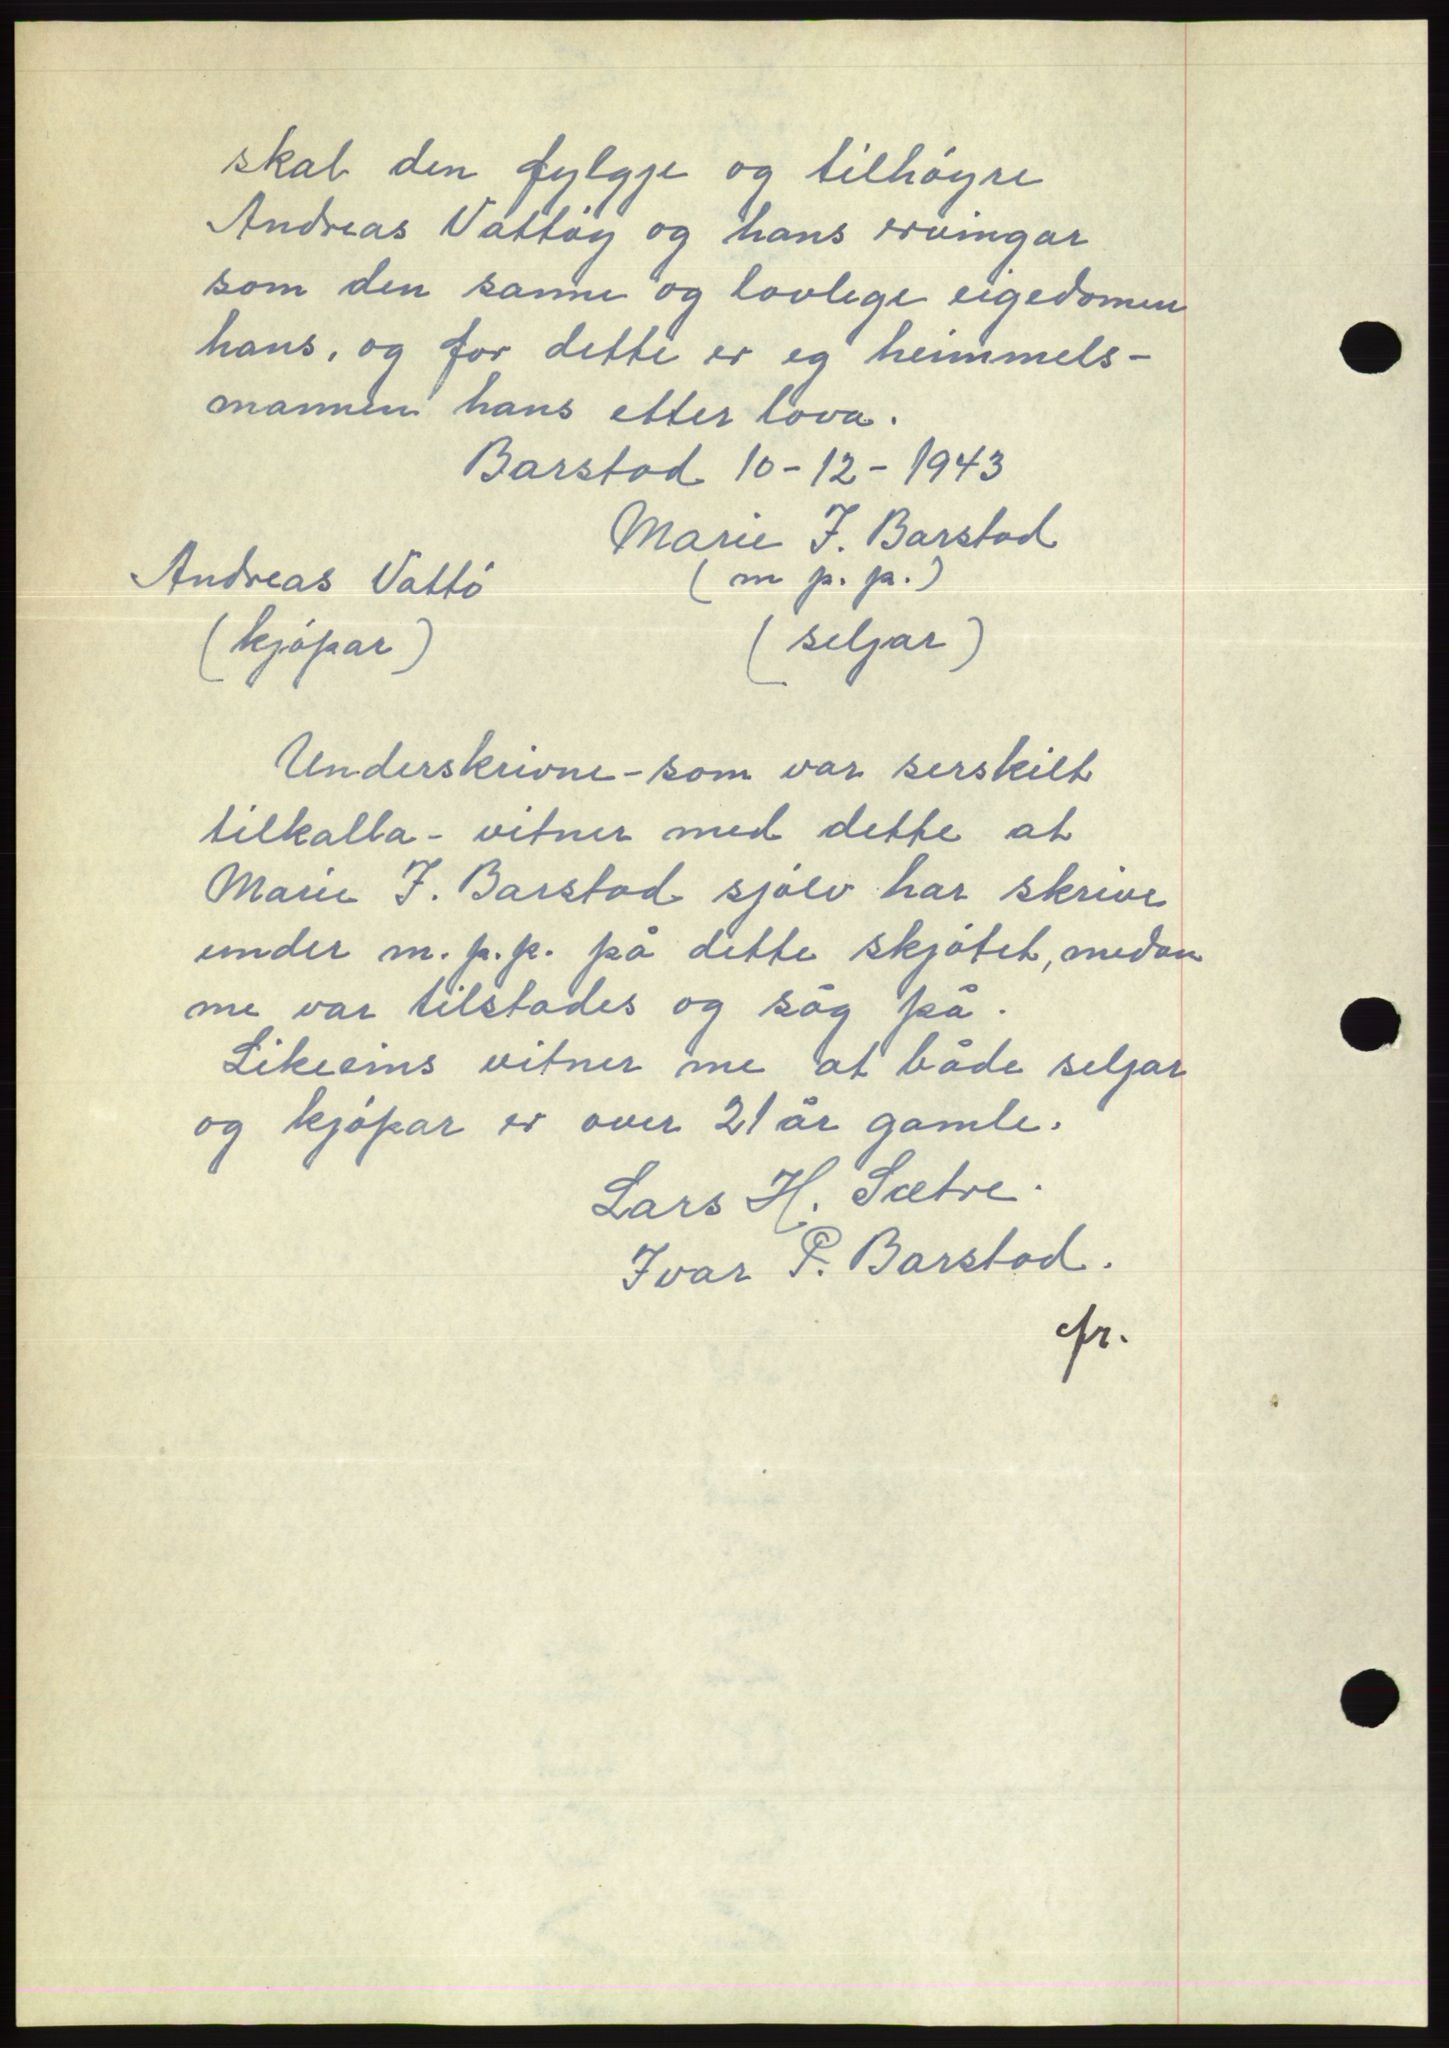 skal den fylgje og tilhöyre
Andreas Vattöy og hans ervingar
som den sanne og lovlege eigedomen
hans, og for dette er eg heimmels-
mannen hans etter lova.
Barstad 10-12-1943
Marie J. Barstad
Andreas Vattö (m p. p.)
(kjöpar) (seljar)
Underskrivne - som var serskilt
tilkalla - vitner med dette at
Marie J. Barstad sjölv har skrive
under m. p. p. på dette skjötet, medan
me var tilstades og såg på.
Likeeins vitner me at både seljar
og kjöpar er over 21 år gamle.
Lars H. Sætre.
Ivar P. Barstad.